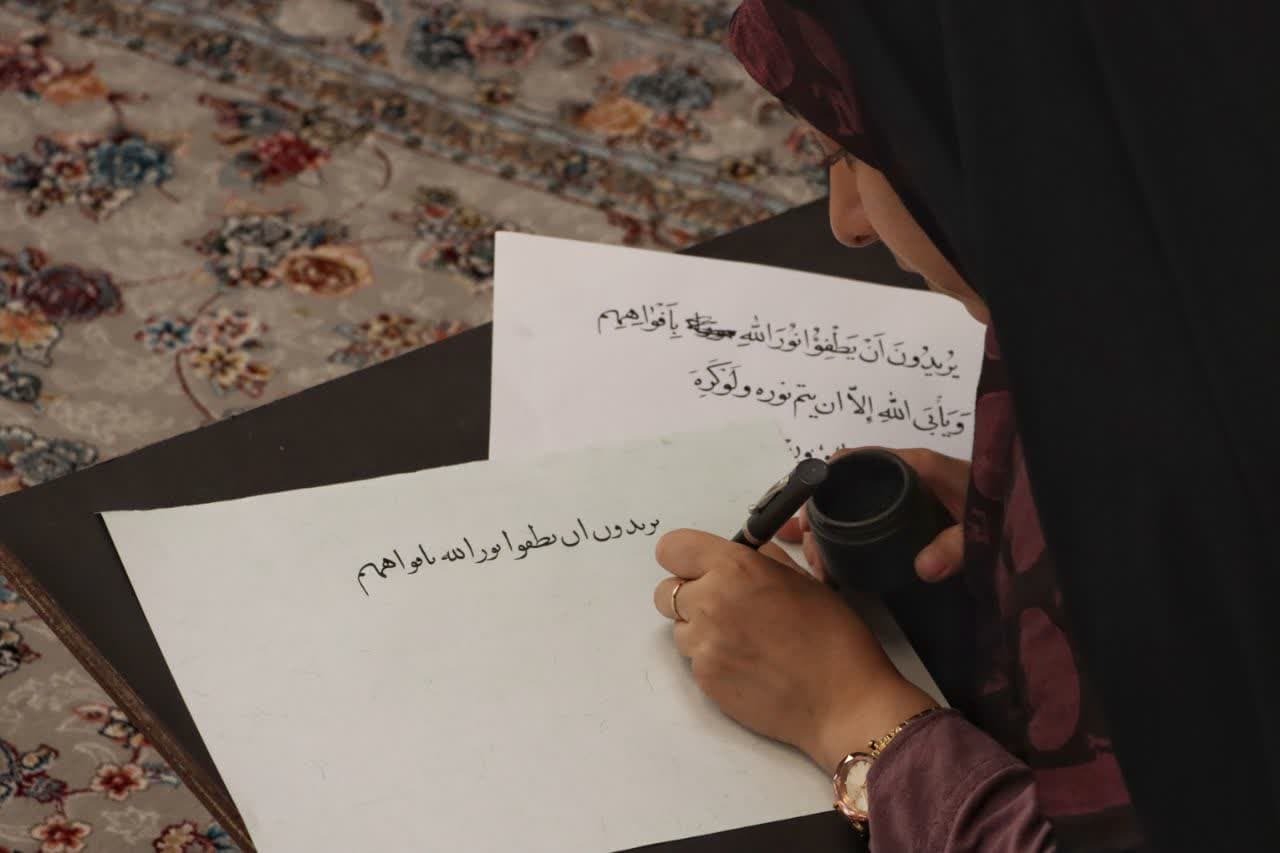 یُریٖدُونَ اَنْ یَطْفِؤُا نُورَ اللهِ بِاَفْوٰاهِهِم
وَ یَأبَی اللهِ إلاّ ان یتم نوره ولَوْ کَرِهَ
یریدون ان یطفوا نور الله بافواههم